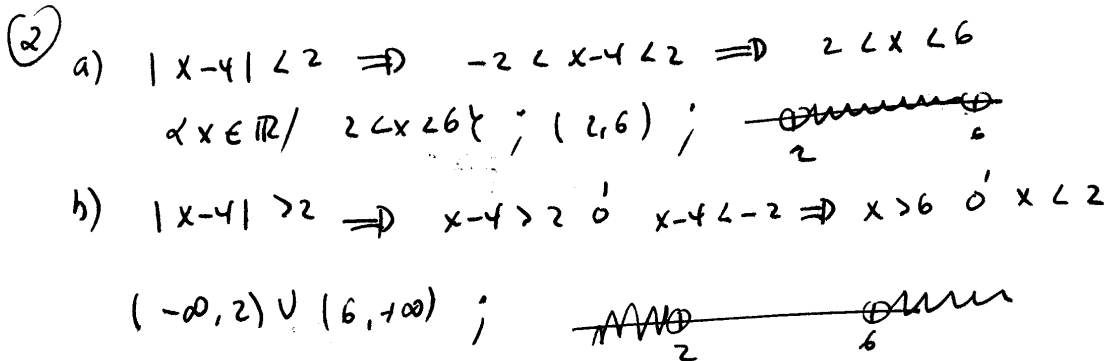 ② a) |x-4| < 2 ⇒ -2 < x-4 < 2 ⇒ 2 < x < 6
{x ∈ ℝ / 2 < x < 6} ; (2,6) ;
2 6
b) |x-4| > 2 ⇒ x-4 > 2 ó x-4 < -2 ⇒ x > 6 ó x < 2
(-∞, 2) ∪ (6, +∞) ;
2 6